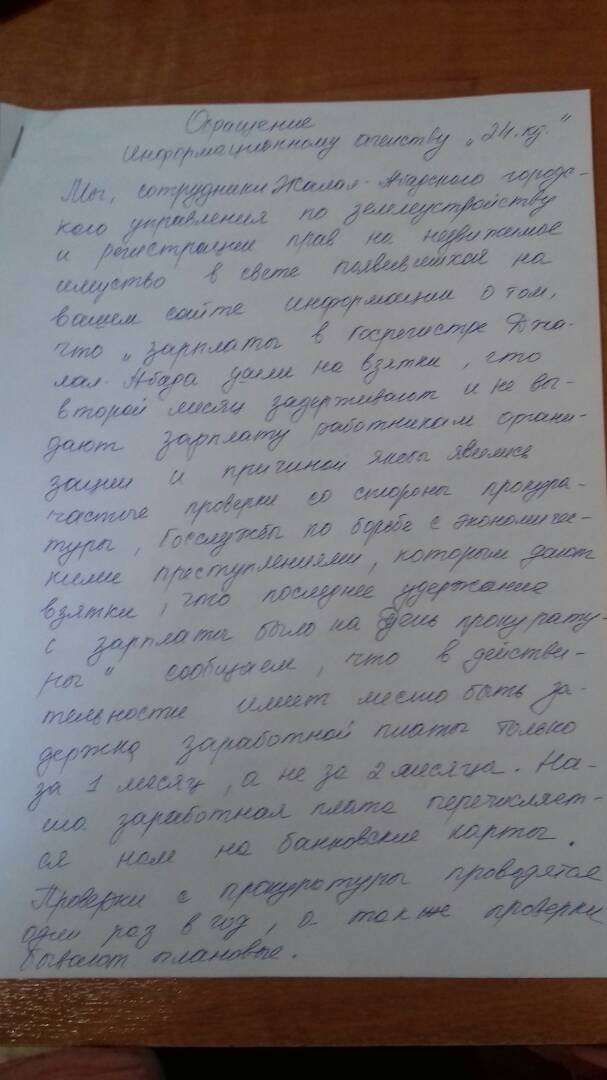 Обращение
Информационному агенству „24.kg."
Мы, сотрудники Жалал-Абадского городс-
кого управления по землеустройству
и регистрации прав на недвижимое
имущество в свете появившихся на
вашем сайте информации о том,
что „зарплаты в Госрегистре Джа-
лал-Абада ушли на взятки, что
второй месяц задерживают и не вы-
дают зарплату работникам органи-
зации и причиной якобы явились
частые проверки со стороны прокура-
туры, Госслужбы по борьбе с экономичес-
кими преступлениями, которым дают
взятки, что последнее удержание
с зарплаты было на День прокурату-
ры" сообщаем, что в действи-
тельности имеет место быть за-
держка заработной платы только
за 1 месяц, а не за 2 месяца. На-
ша заработная плата перечисляет-
ся нам на банковские карты.
Проверки с прокуратуры проводятся
один раз в год, а также проверки
бывают плановые.